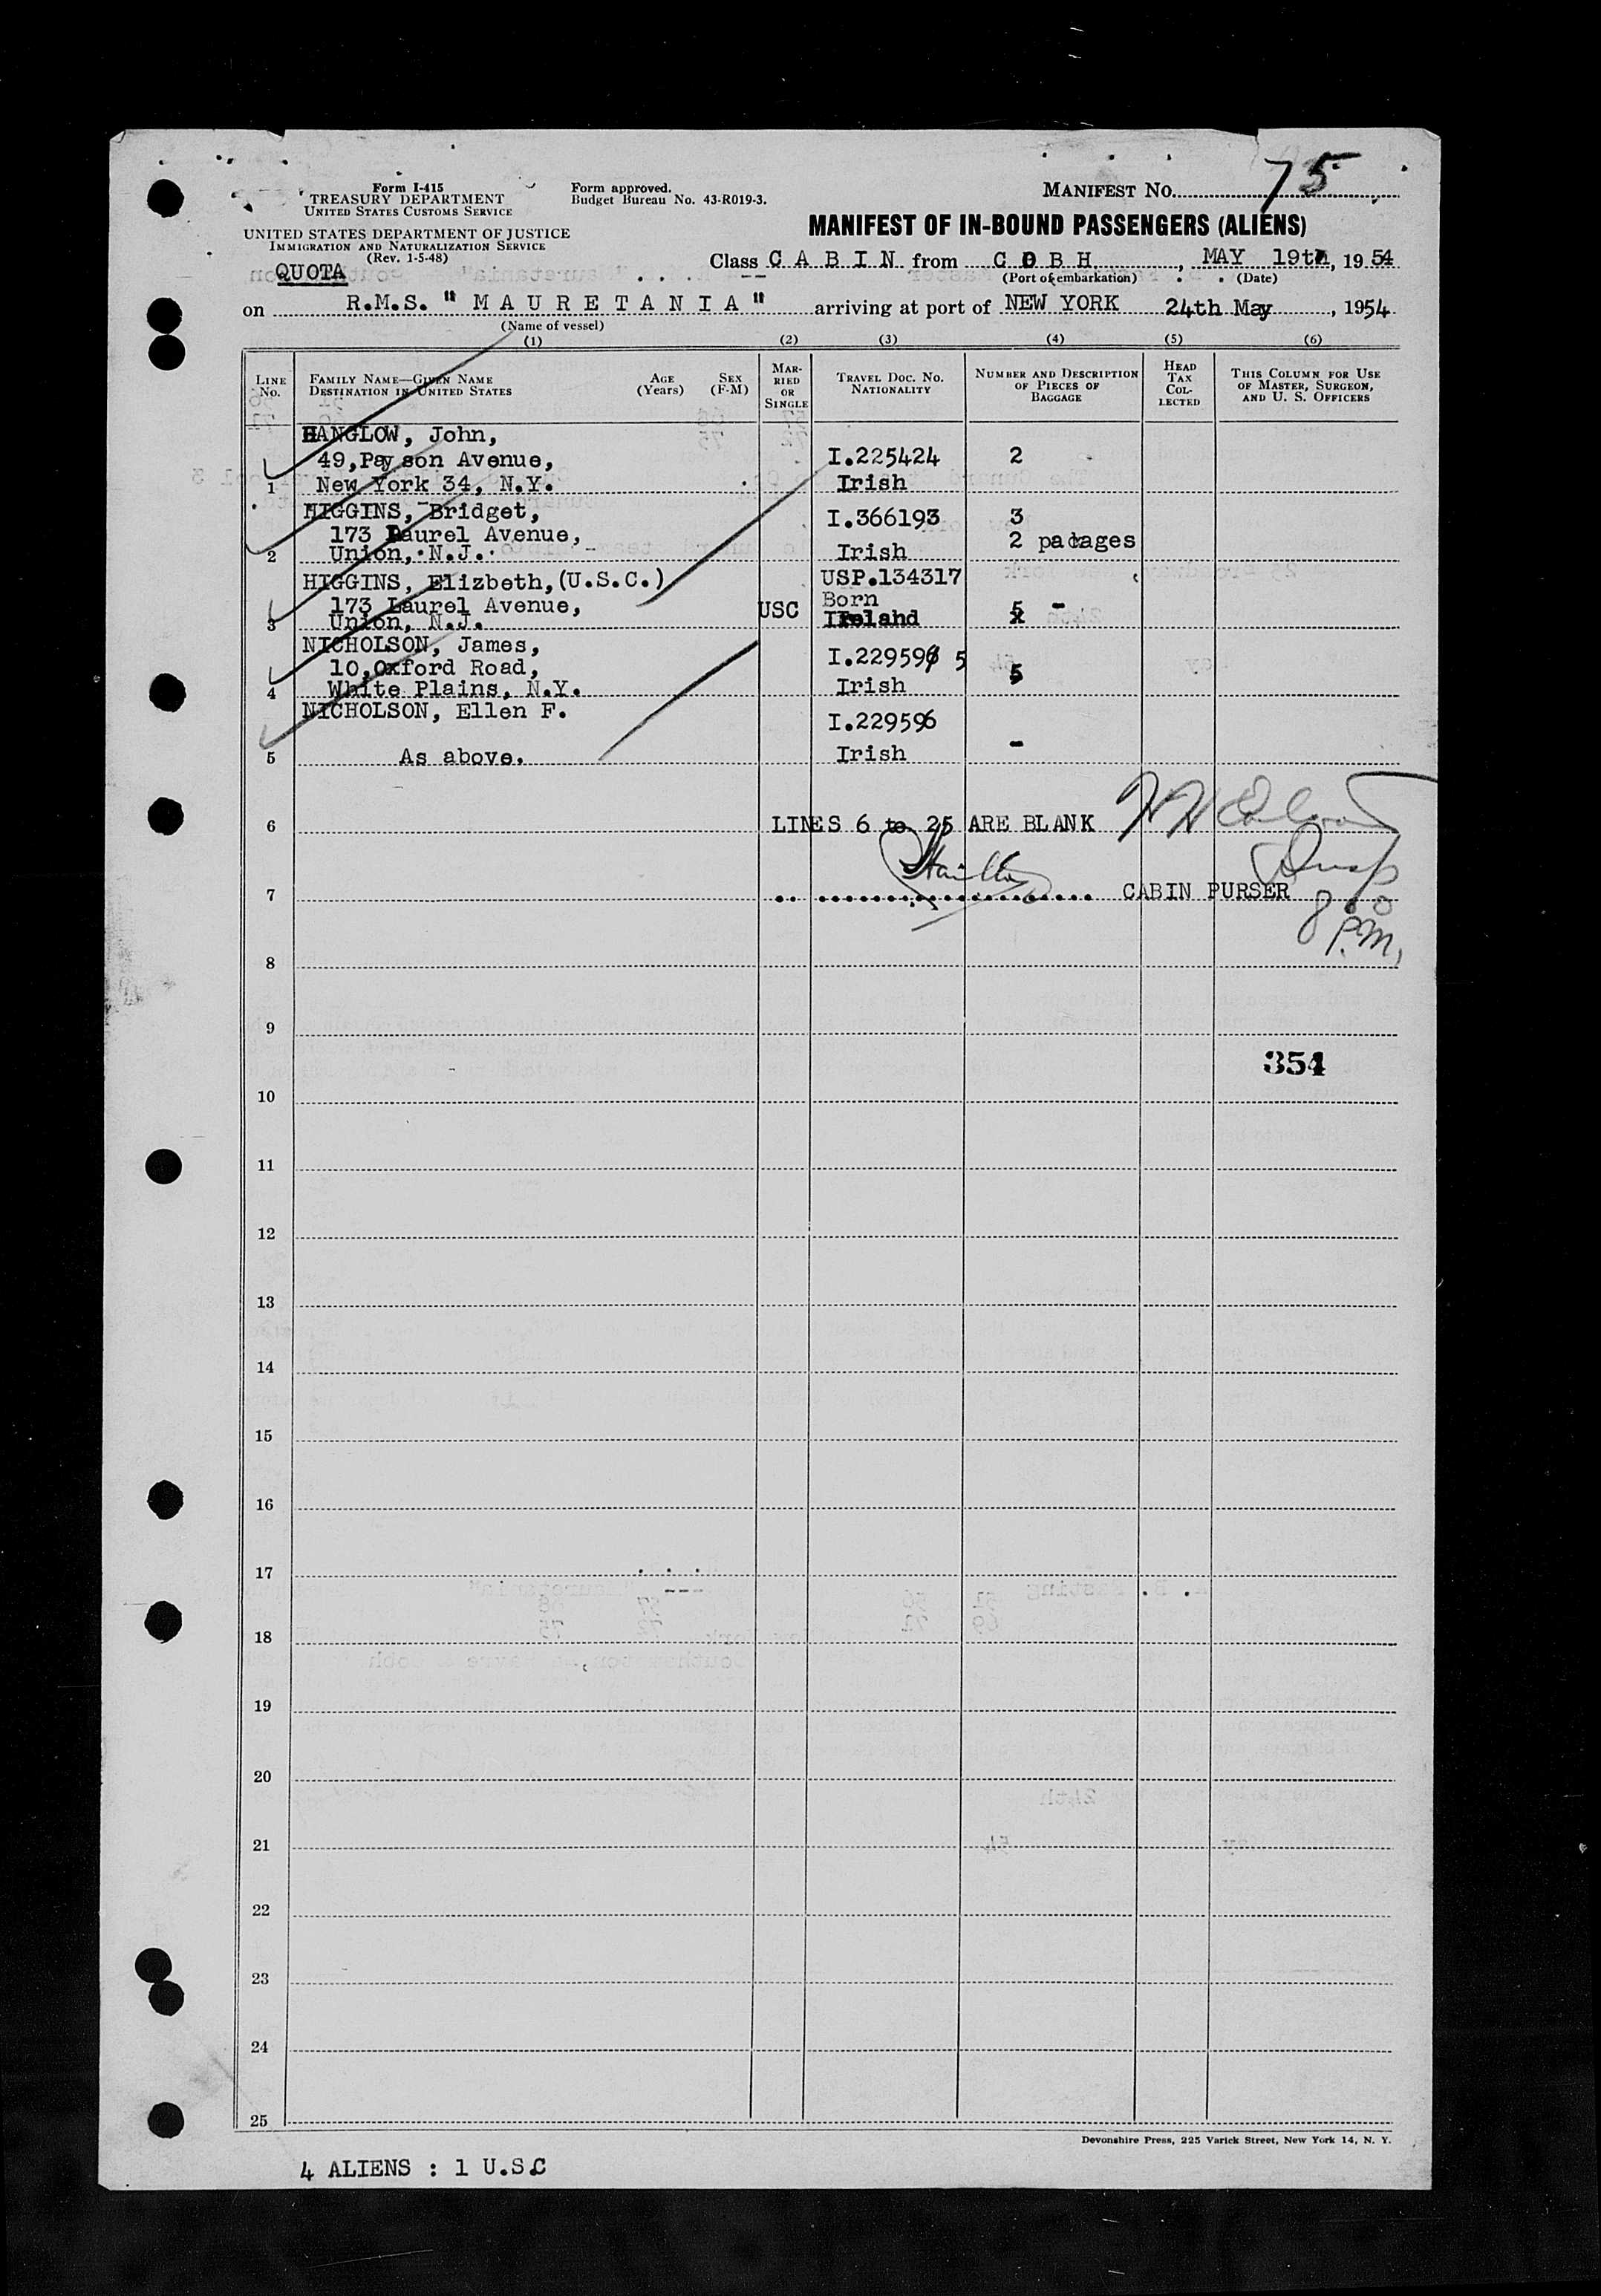 75
Form I-415
TREASURY DEPARTMENT
UNITED STATES CUSTOMS SERVICE
UNITED STATES DEPARTMENT OF JUSTICE
IMMIGRATION AND NATURALIZATION SERVICE
(Rev. 1-5-48)
Form approved.
Budget Bureau No. 43-R019-3.
MANIFEST NO.
MANIFEST OF IN-BOUND PASSENGERS (ALIENS)
QUOTA
Class CABIN from COBH, MAY 19th, 1954
(Port of embarkation) (Date)
on R.M.S. "MAURETANIA" arriving at port of NEW YORK 24th May, 1954
(Name of vessel)
(1) (2) (3) (4) (5) (6)
LINE No.
FAMILY NAME—GIVEN NAME
DESTINATION IN UNITED STATES
AGE (Years)
SEX (F-M)
MARRIED OR SINGLE
TRAVEL DOC. NO.
NATIONALITY
NUMBER AND DESCRIPTION OF PIECES OF BAGGAGE
HEAD TAX COLLECTED
THIS COLUMN FOR USE OF MASTER, SURGEON, AND U. S. OFFICERS
HANGLOW, John,
49,Payson Avenue, I.225424 2
1 New York 34, N.Y. Irish
HIGGINS, Bridget, I.366193 3
173 Laurel Avenue, 2 packages
2 Union, N.J. Irish
HIGGINS, Elizbeth,(U.S.C.) USP.134317
173 Laurel Avenue, USC Born 5 -
3 Union, N.J. Ireland
NICHOLSON, James,
10,Oxford Road, I.229596 5 5
4 White Plains, N.Y. Irish
NICHOLSON, Ellen F. I.229596
5 As above. Irish -
6 LINES 6 to 25 ARE BLANK
7 CABIN PURSER
8 P.M.
8
9
354
10
11
12
13
14
15
16
17
18
19
20
21
22
23
24
25
Devonshire Press, 225 Varick Street, New York 14, N. Y.
4 ALIENS : 1 U.S.C